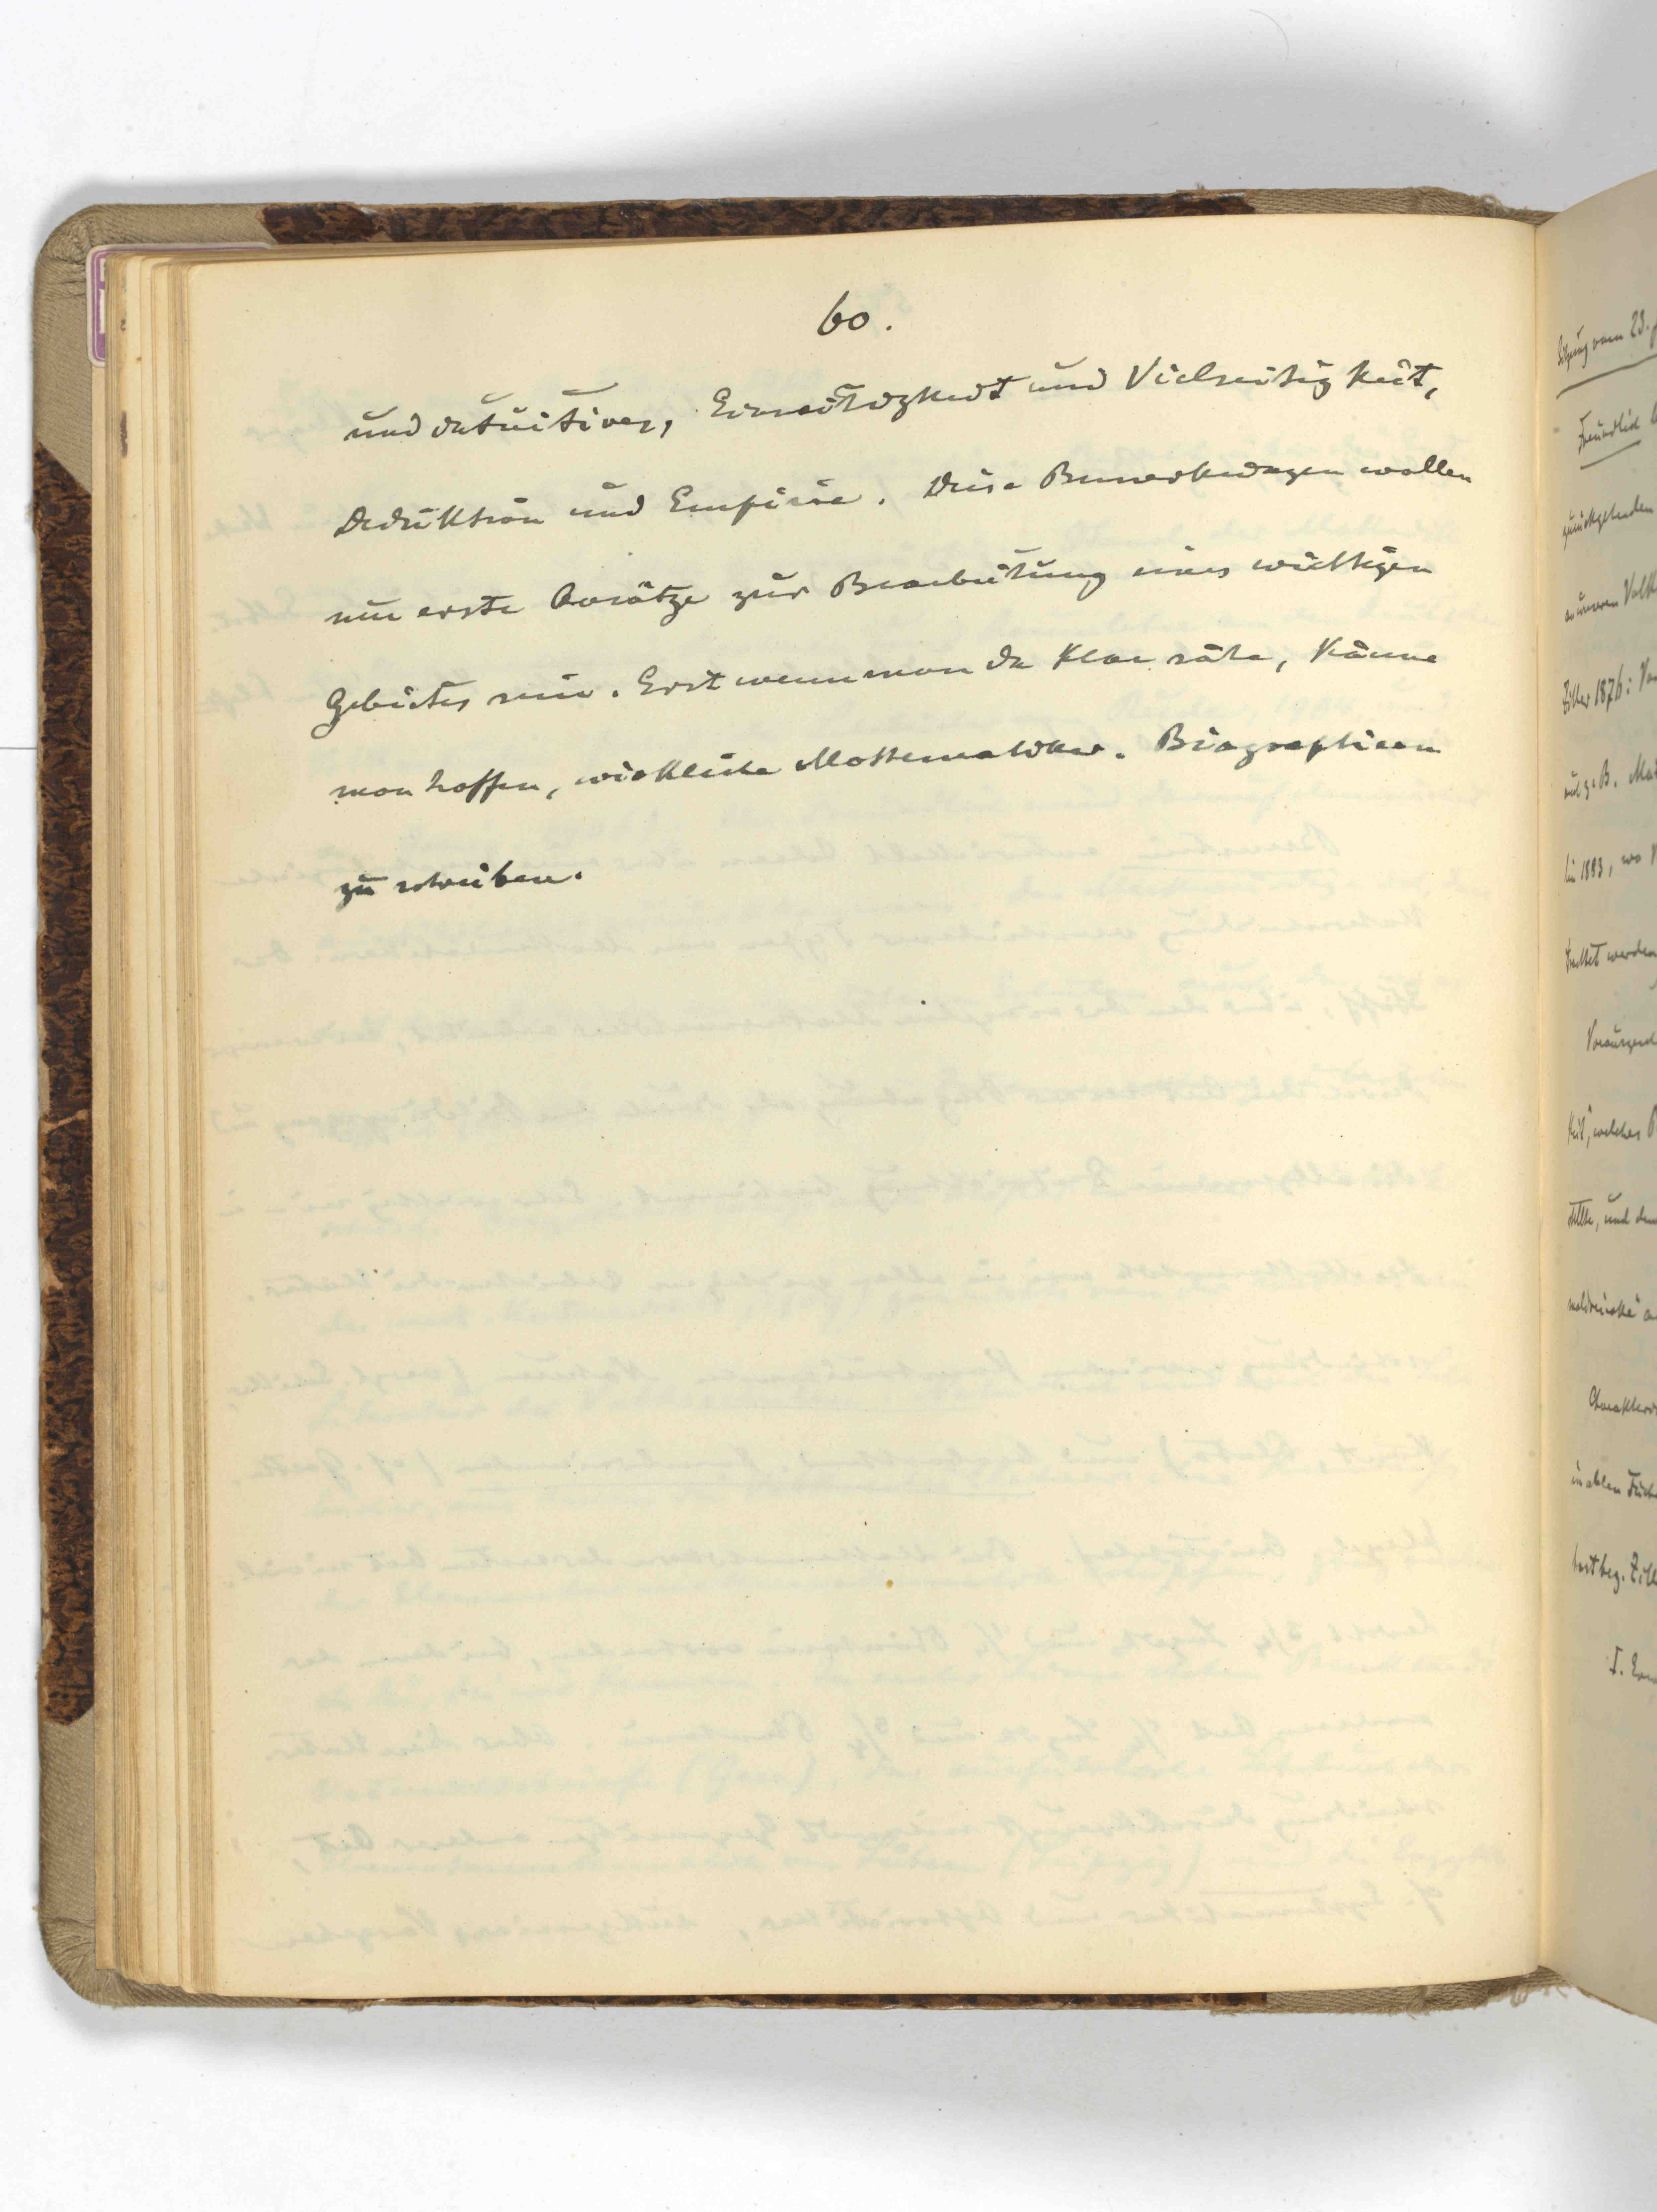 60.
und intuitives, Einseitigkeit und Vielseitigkeit,
Deduktion und Empirie. Diese Bemerkungen wollen
nur erste Ansätze zur Bearbeitung eines wichtigen
Gebietes sein. Erst wenn man da klar sähe, könne
man hoffen, wirkliche Mathematiker-Biographieen
zu schreiben.
Sitzung vom 23.
Freundlich
zurückgehenden
an unseren
Ziller 1876:
und z. B.
lin 1883, wo
trachtet werden
keit", welches
stellte, und
in allen